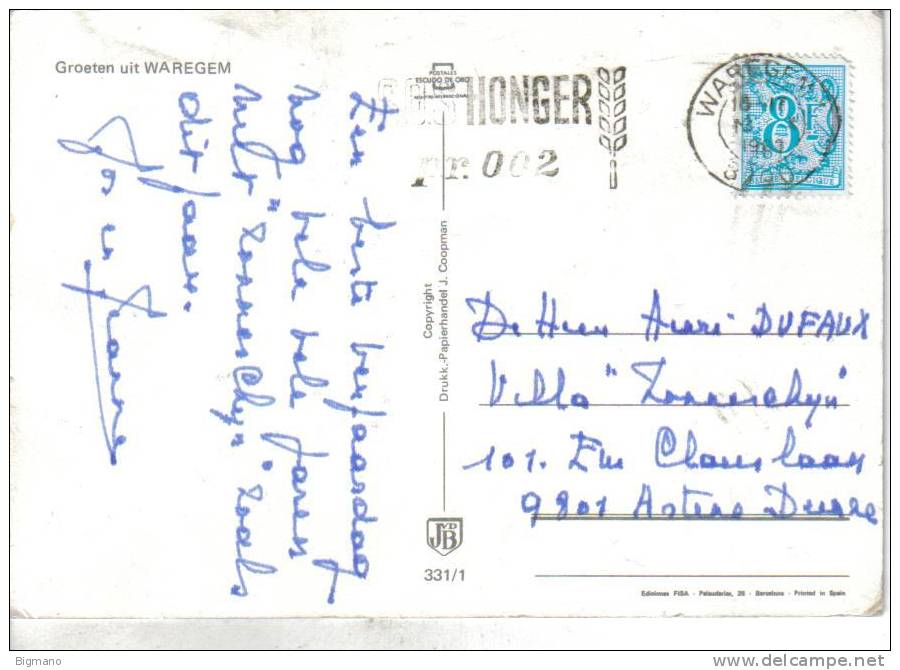 Groeten uit WAREGEM
Een beste verjaardag
nog vele vele jaren
met "Zonneschijn" zoals
dit jaar.
Jos en Jeanne
POSTALES
ESCUDO DE ORO
HONGER
pr. 002
WAREGEM
8F
Copyright
Drukk.-Papierhandel J. Coopman
VD
JB
331/1
De Heer Henri DUFAUX
Villa "Zonneschijn"
101. Em Clauslaan
9801 Astene Deinze
Ediciones FISA - Palaudarias, 26 - Barcelona - Printed in Spain
Bigmano
http://www.delcampe.net